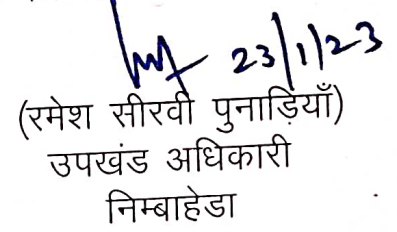 23/1/23
(रमेश सीरवी पुनाड़ियाँ)
उपखंड अधिकारी
निम्बाहेडा